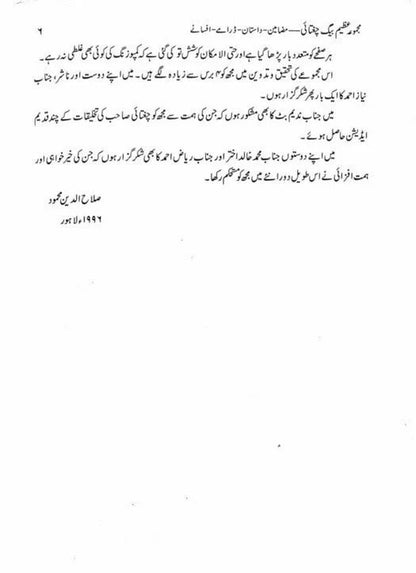 مجموعہ عظیم بیگ چغتائی — مضامین - داستان - ڈرامے - افسانے ۶
ہر صفحے کو متعدد بار پڑھا گیا ہے اور حتی الامکان کوشش تو کی گئی ہے کہ کمپوزنگ کی کوئی بھی غلطی نہ رہے۔
اس مجموعے کی تحقیق و تدوین میں مجھ کو ۳ برس سے زیادہ لگے ہیں۔ میں اپنے دوست اور ناشر، جناب
نیاز احمد کا ایک بار پھر شکر گزار ہوں۔
میں جناب ندیم بٹ کا بھی مشکور ہوں کہ جن کی ہمت سے مجھ کو چغتائی صاحب کی تخلیقات کے چند قدیم
ایڈیشن حاصل ہوئے۔
میں اپنے دوستوں جناب محمد خالد اختر اور جناب ریاض احمد کا بھی شکر گزار ہوں کہ جن کی خیر خواہی اور
ہمت افزائی نے اس طویل دورانئے میں مجھ کو مستحکم رکھا۔
صلاح الدین محمود
۱۹۹۶ء لاہور